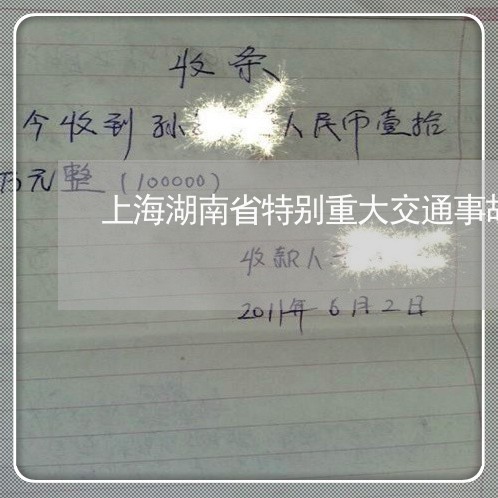 收条
今收到孙 人民币壹拾
万元整(100000)
上海湖南省特别重大交通事故
收款人
2011年6月2日